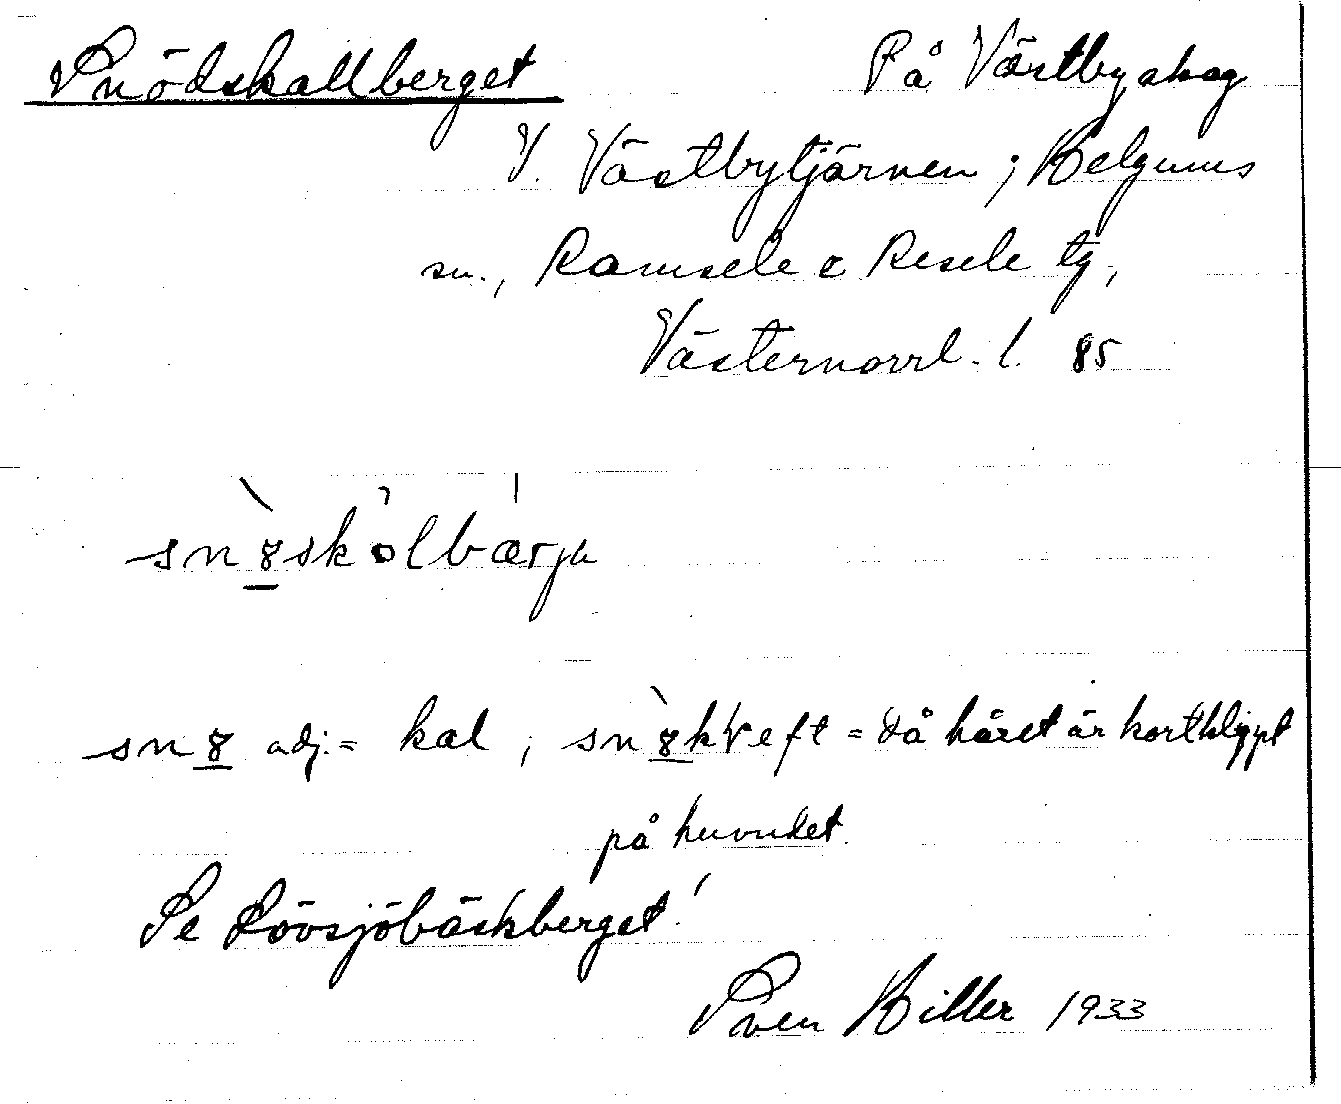 Snödskallberget På Västbyskog
V. Västbytjärnen ; Helgums
sn., Ramsele & Resele tg,
Västernorrl. l. 85
sn&skålbærjɯ
sn& adj. = kal ; sn&k = då håret är kortklippt
på huvudet.
Se Lövsjöbäckberget!
Sven Hiller 1933